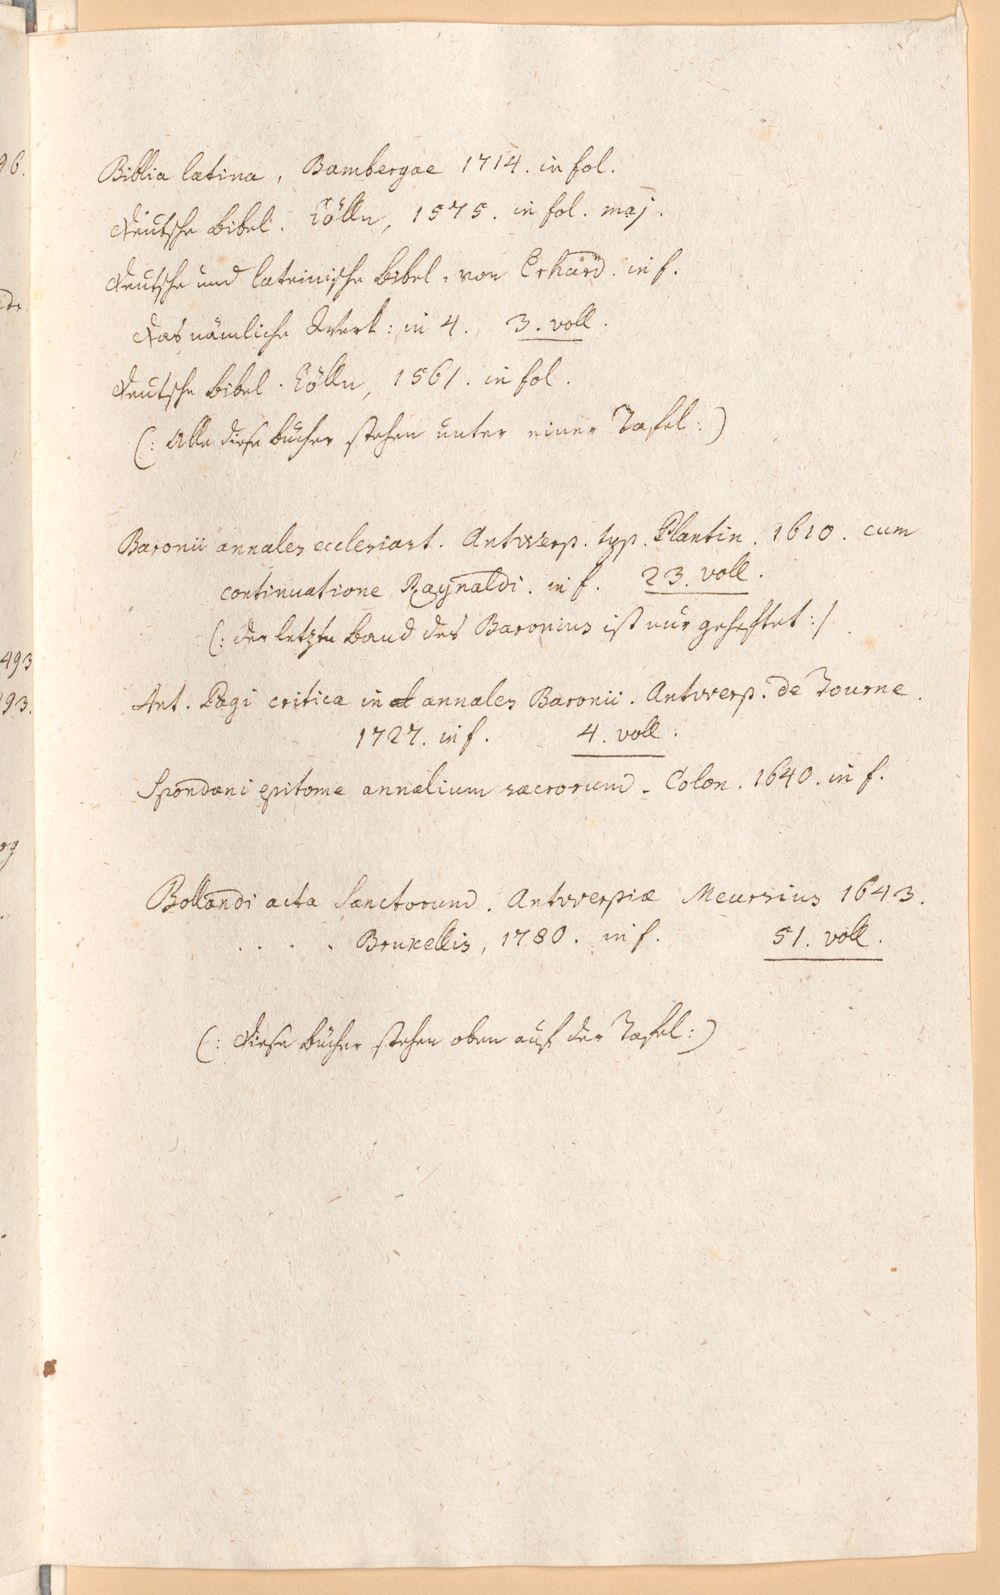 Biblia latina, Bambergae 1714. in fol.
Deutsche Bibel. Cölln, 1575. in fol. maj.
Deutsche und lateinische Bibel, von Erhard. in f.
Das nämliche Werk: in 4. 3. voll.
Deutsche Bibel. Cölln, 1561. in fol.
(: Alle diese Bücher stehen unter einer Tafel :)
Baronii annales ecclesiast. Antwerp. typ. Plantin. 1610. cum
continuatione Raynaldi. in f. 23. voll.
(: der letzte Band des Baronius ist nur geheftet :/
Ant. Pagi critica in annales Baronii. Antwerp. de Tourne.
1727. in f. 4. voll.
Spondani epitome annalium sacrorum. Colon. 1640. in f.
Bollandi acta Sanctorum. Antverpiæ Meursius 1643.
. . . . Bruxellis, 1780. in f. 51. voll.
(: Diese Bücher stehen oben auf der Tafel :)
96.
493
93.
og